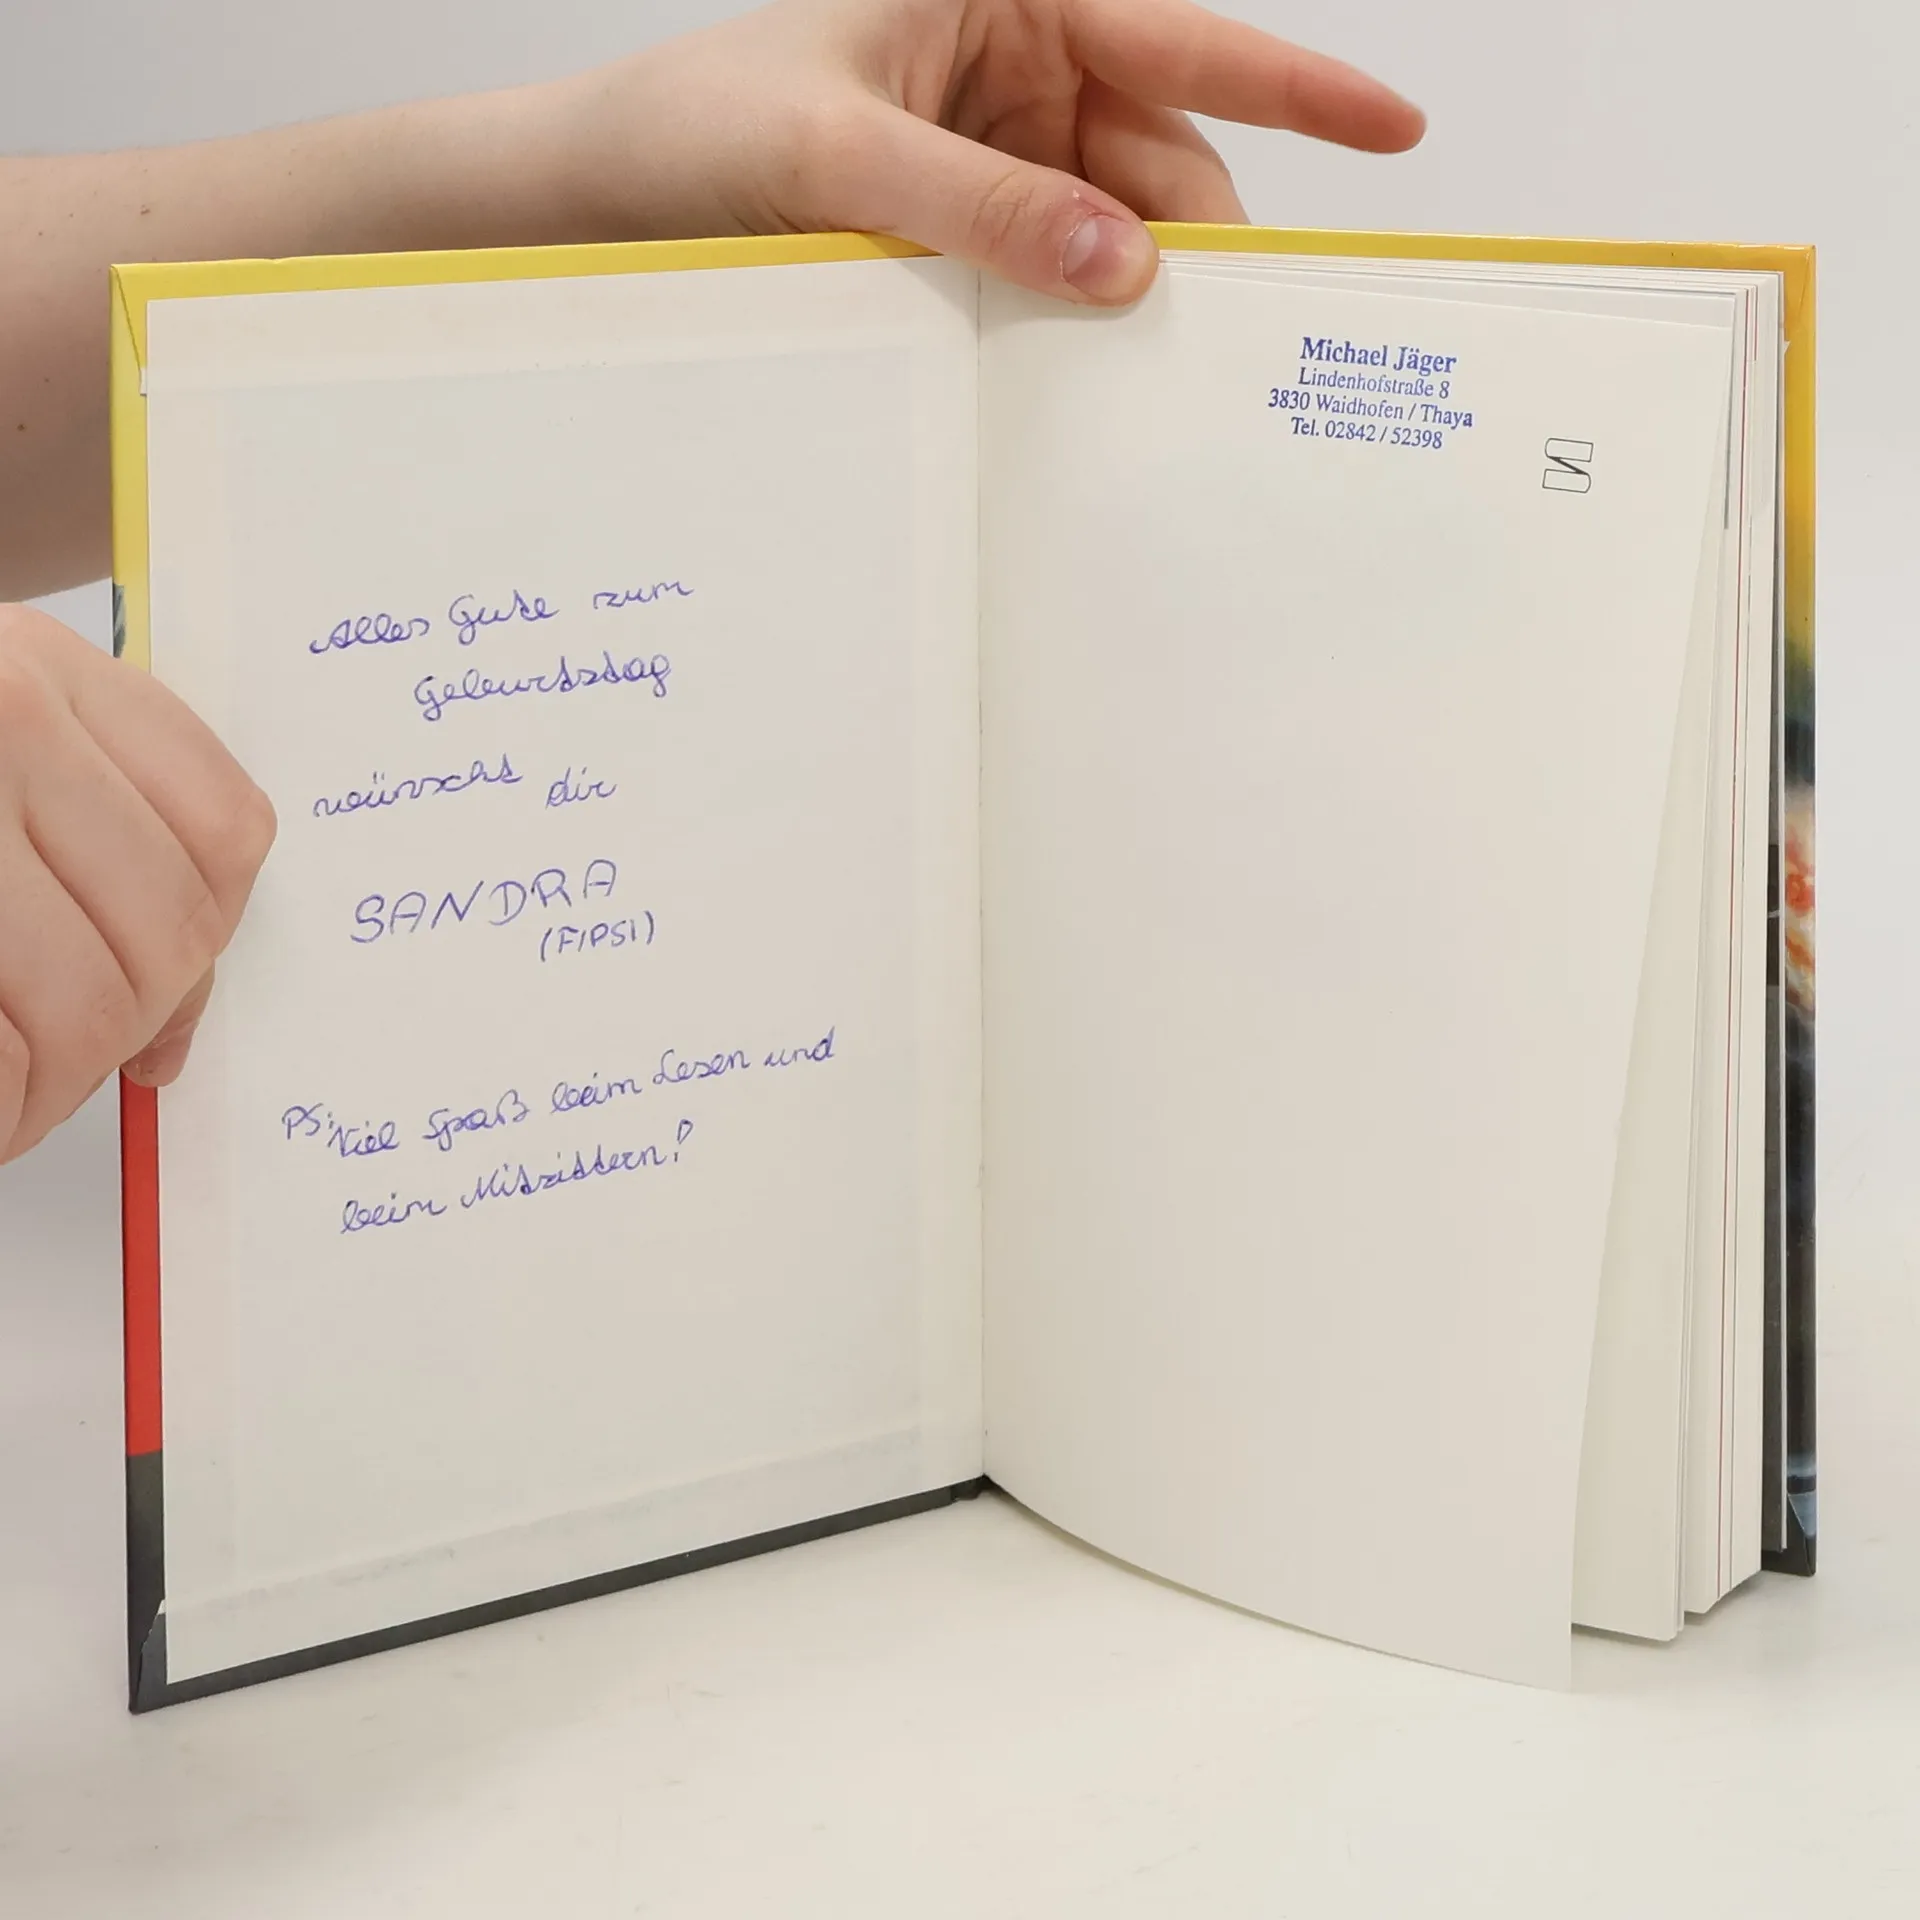 Alles Gute zum
Geburtstag
wünscht dir
SANDRA
(FIPSI)
PS: Viel Spaß beim Lesen und
beim Mitzittern!
Michael Jäger
Lindenhofstraße 8
3830 Waidhofen / Thaya
Tel. 02842 / 52398